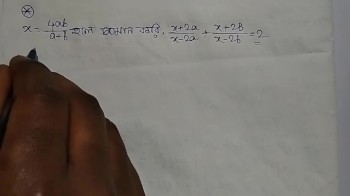 x = 4ab/a+b হলে প্রমাণ করি, x+2a/x-2a + x+2b/x-2b = 2